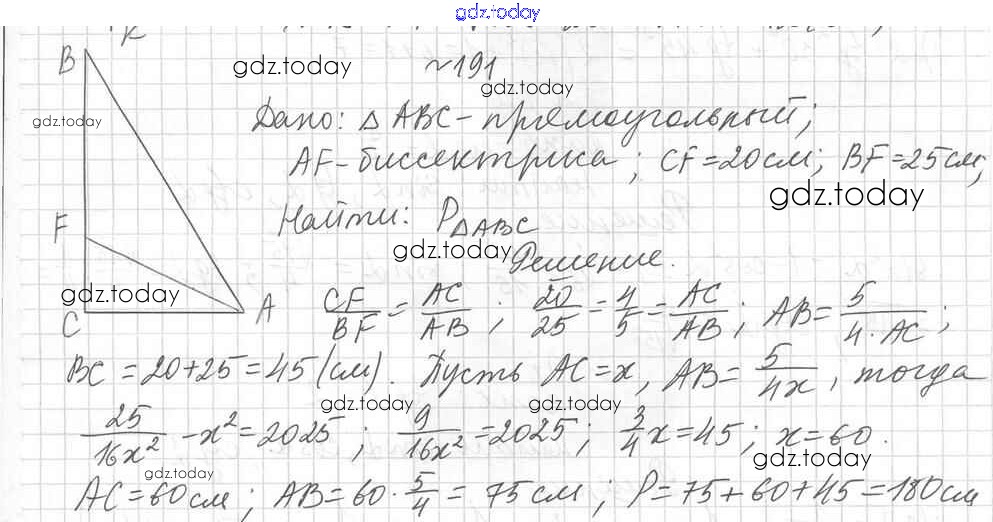 gdz.today
№191
gdz.today
gdz.today
gdz.today
Дано: △ ABC - прямоугольный;
AF - биссектриса; CF = 20 см; BF = 25 см;
gdz.today
Найти: P△ABC
gdz.today
Решение.
B
F
C
A
gdz.today
CF/BF = AC/AB; 20/25 = 4/5 = AC/AB; AB = 5/4·AC;
BC = 20+25 = 45 (см). Пусть AC = x, AB = 5/4x, тогда
gdz.today
gdz.today
25/16x² - x² = 2025; 9/16x² = 2025; 3/4 x = 45; x = 60.
gdz.today
gdz.today
AC = 60 см; AB = 60 · 5/4 = 75 см; P = 75 + 60 + 45 = 180 см